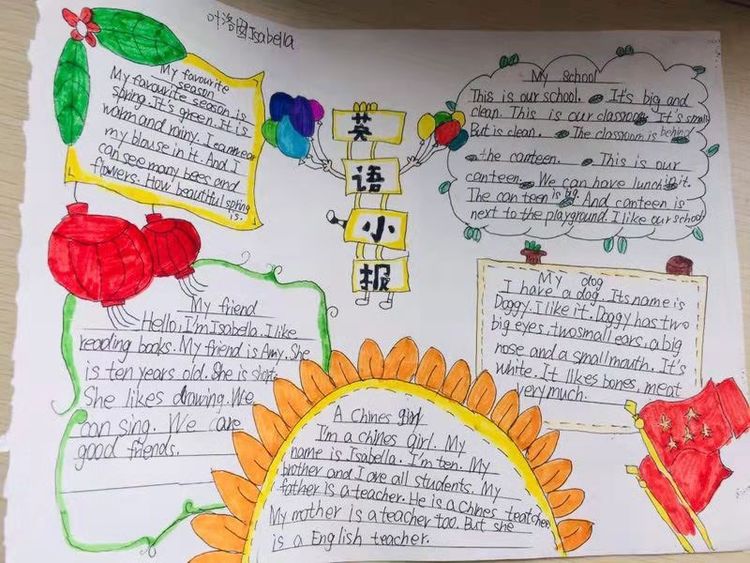 叶洛图Isabella
英
语
小
报
My favourite
season
My favourite season is
spring. It's green. It is
warm and rainy. I can wear
my blouse in it. And I
can see many bees and
flowers. How beautiful spring
is.
My school
This is our school. It's big and
clean. This is our classroom. It's small
But is clean. The classroom is behind
the canteen. This is our
canteen. We can have lunch it.
The can teen is big. And canteen is
next to the playground. I like our school
My friend
Hello. I'm Isabella. I like
reading books. My friend is Amy. She
is ten years old. She is short.
She likes drawing. We
can sing. We are
good friends.
My dog
I have a dog. Its name is
Doggy. I like it. Doggy has two
big eyes. two small ears. a big
nose and a small mouth. It's
white. It likes bones, meat
very much.
A Chines girl
I'm a chines girl. My
name is Isabella. I'm ten. My
brother and I are all students. My
father is a teacher. He is a Chines teatcher
My mother is a teacher too. But she
is a English teacher.